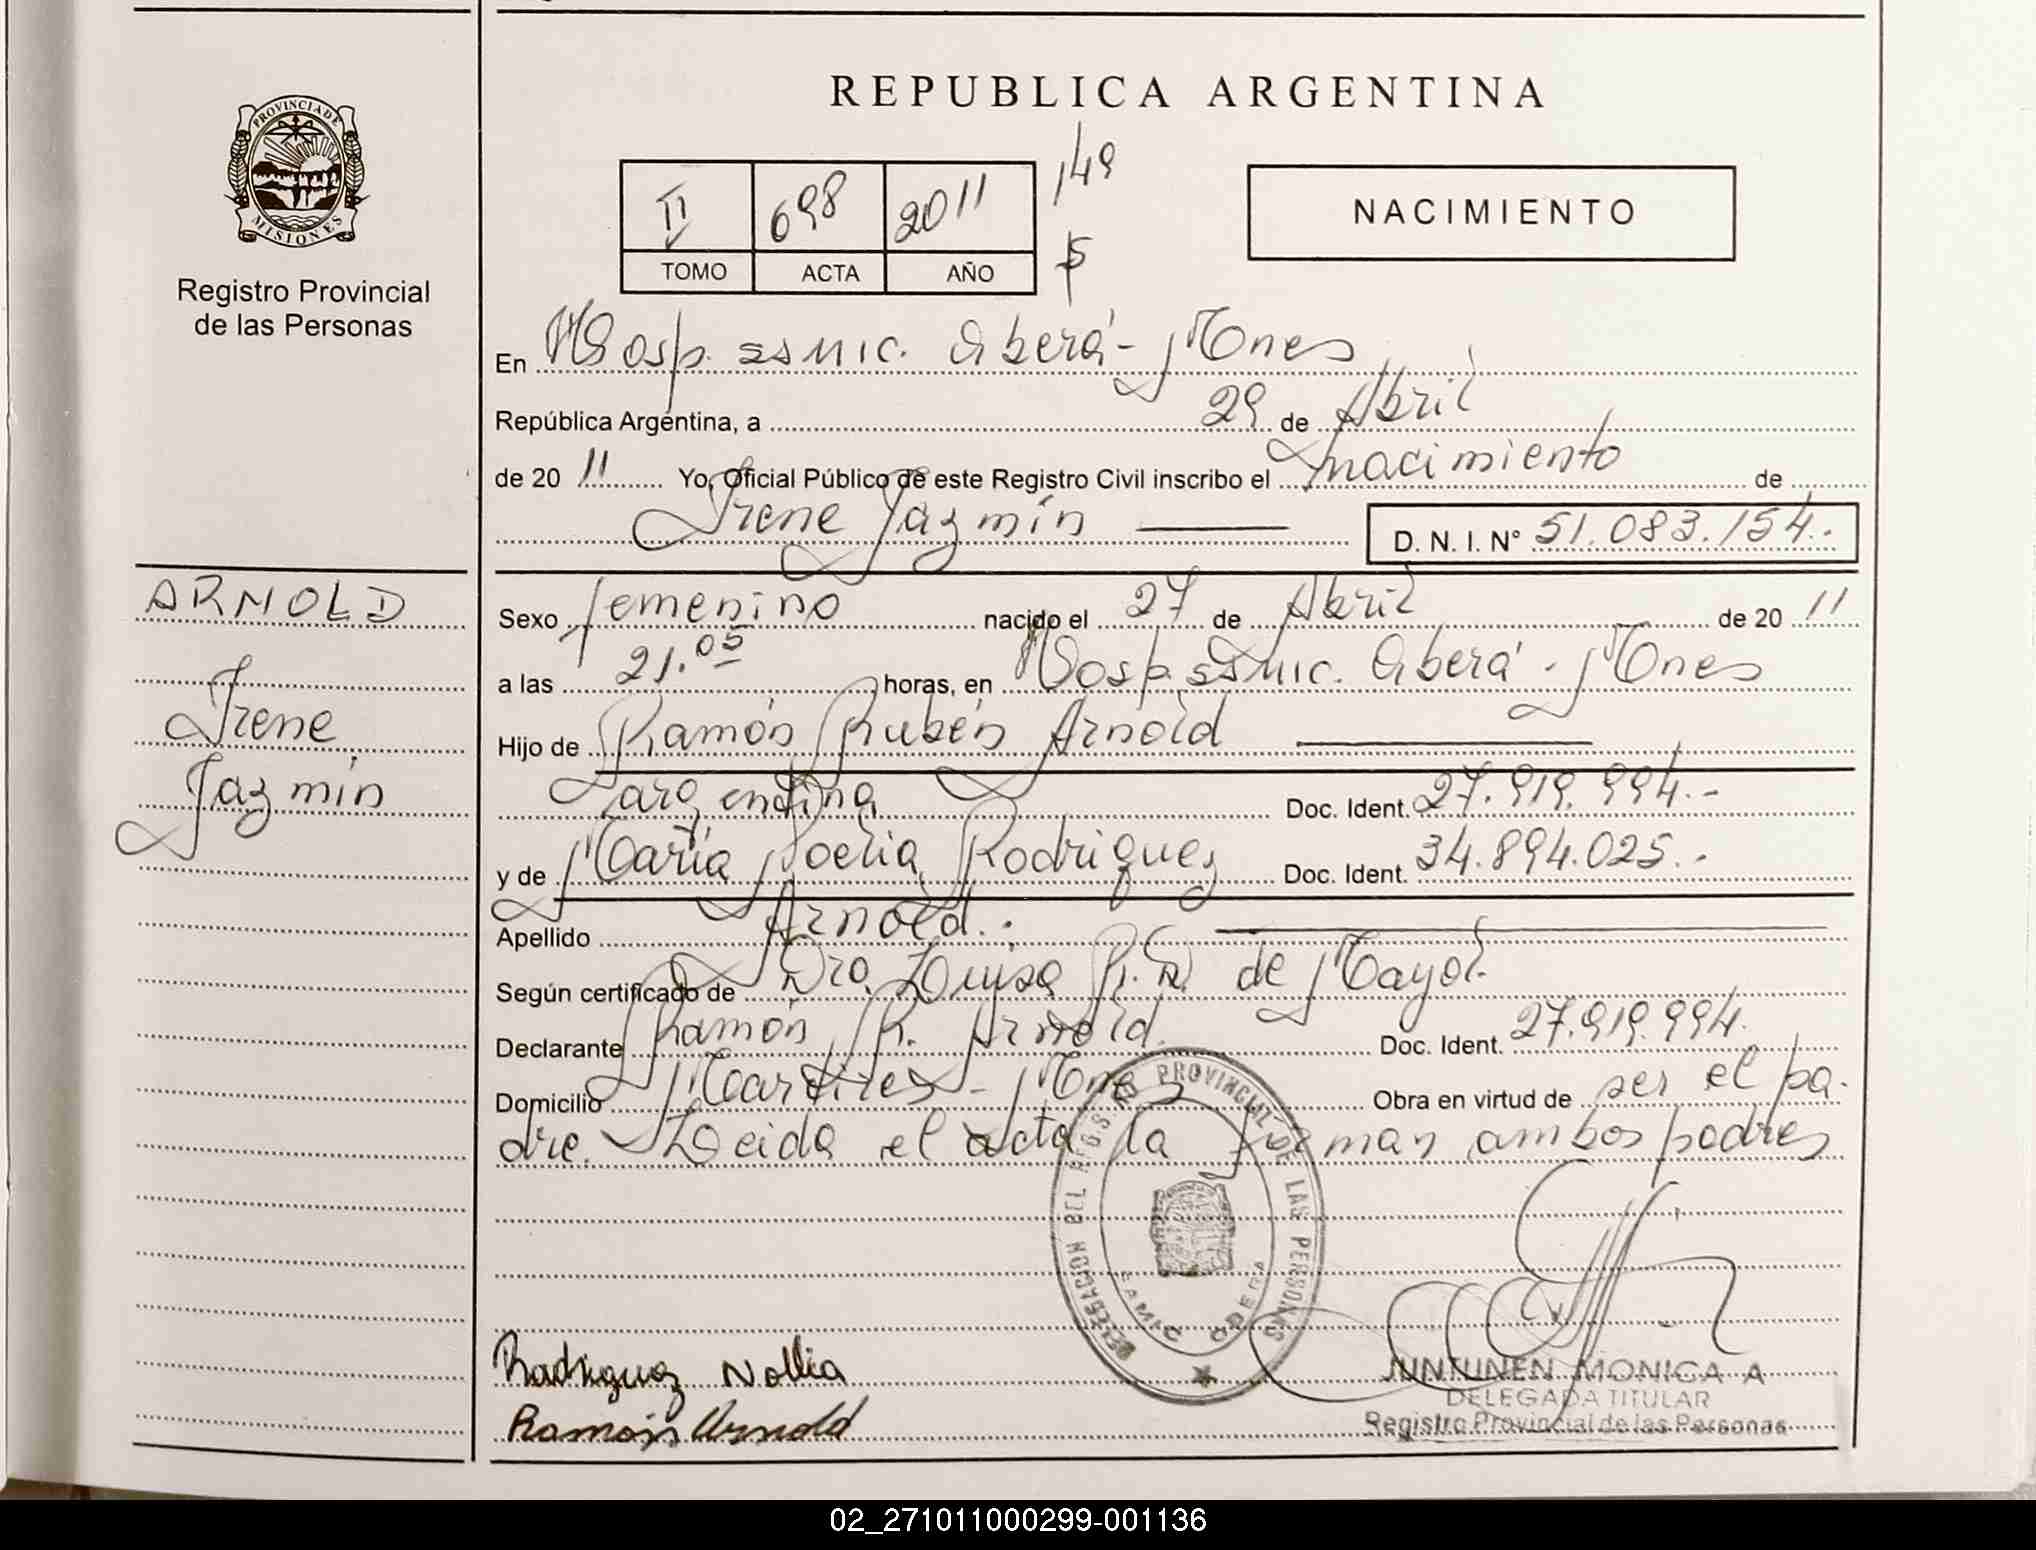 REPUBLICA ARGENTINA
PROVINCIA DE MISIONES
Registro Provincial
de las Personas
II 698 2011 149
TOMO ACTA AÑO
NACIMIENTO
En Hosp. ssmic. Oberá - Mnes
República Argentina, a 29 de Abril
de 20 11 Yo, Oficial Público de este Registro Civil inscribo el nacimiento de
Irene Jazmín D. N. I. N° 51.083.154.-
ARNOLD
Irene
Jazmín
Sexo femenino nacido el 27 de Abril de 20 11
a las 21.05 horas, en Hosp. ssmic. Oberá - Mnes
Hijo de Ramón Rubén Arnold
argentina Doc. Ident. 27.919.994.-
y de María Noelia Rodriguez Doc. Ident. 34.894.025.-
Apellido Arnold.
Según certificado de Dra. Luisa de Mayol.
Declarante Ramón R. Arnold. Doc. Ident. 27.919.994.
Domicilio Martires - Mnes Obra en virtud de ser el pa-
dre. Leida el acta la firman ambos padres
DELEGACION DEL REG.S. PROVINCIAL DE LAS PERSONAS
SAMIC OBERA
Rodriguez Nollia
Ramón Arnold
JUNTUNEN MONICA A
DELEGADA TITULAR
Registro Provincial de las Personas
02_271011000299-001136